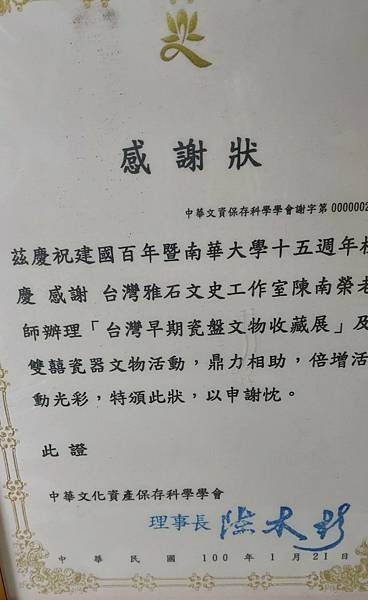 感謝狀
中華文資保存科學學會謝字第0000002
茲慶祝建國百年暨南華大學十五週年校
慶 感謝 台灣雅石文史工作室陳南榮老
師辦理「台灣早期瓷盤文物收藏展」及
雙囍瓷器文物活動，鼎力相助，倍增活
動光彩，特頒此狀，以申謝忱。
此證
中華文化資產保存科學學會
理事長
中華民國 100 年 1 月 21 日